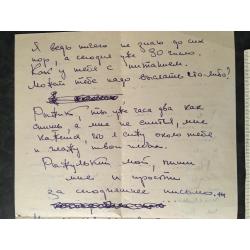 Я ведь ничего не знаю до сих
пор, а сегодня уже 30 число.
Как у тебя с питанием.
Может тебе надо выслать что-либо?
Рыжик, ты уже часа два как
спишь, а мне не спится, мне
кажется, что я сижу около тебя
и глажу твои
мой, пиши
мне и прости
за сегодняшнее письмо.